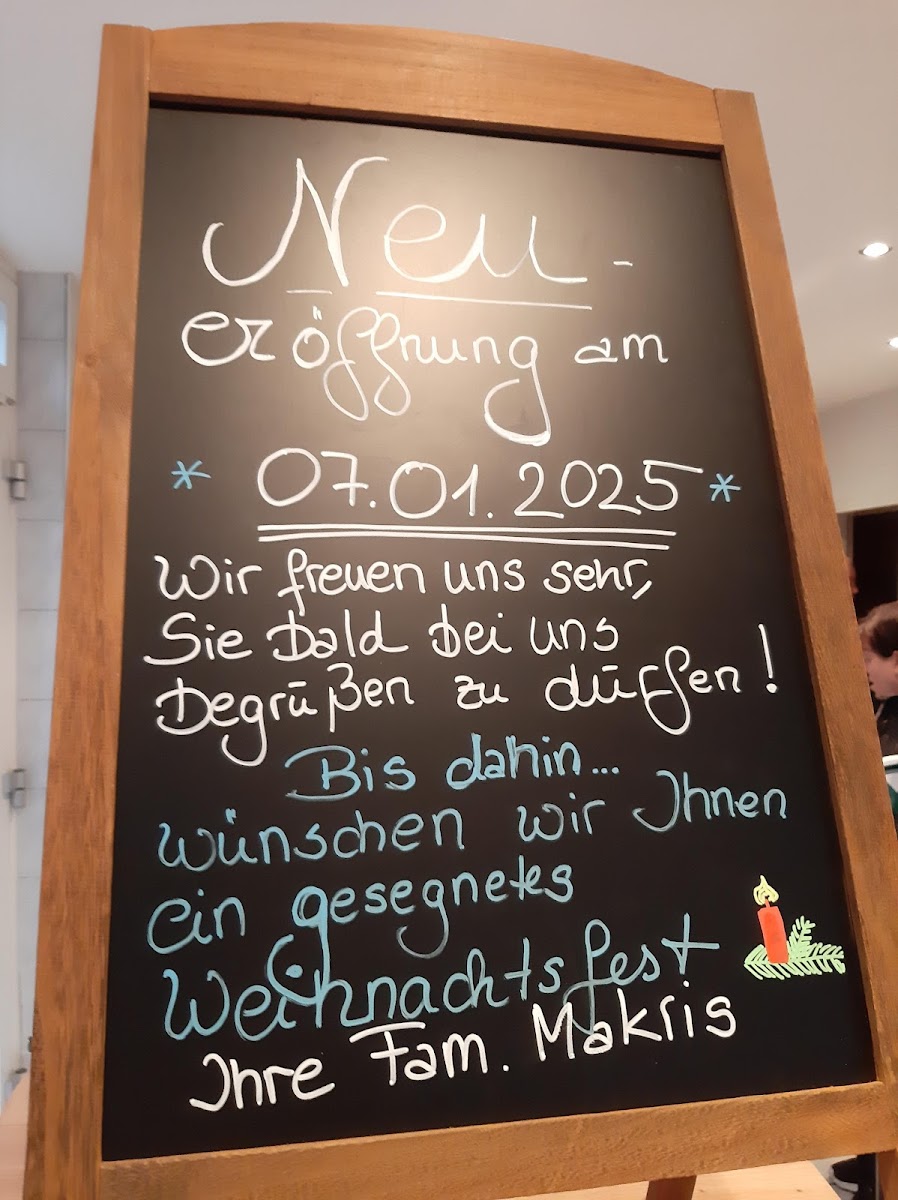 Neu-
eröffnung am
* 07.01.2025 *
Wir freuen uns sehr,
Sie bald bei uns
begrüßen zu dürfen!
Bis dahin...
wünschen wir Ihnen
ein gesegnetes
Weihnachtsfest
Ihre Fam. Makris